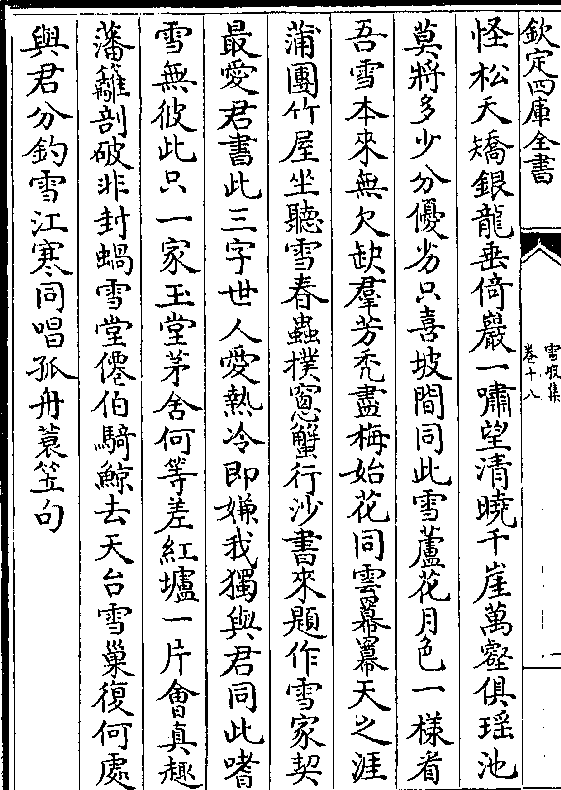 欽定四庫全書
雪坡集
卷十八
一
怪松夭矯銀龍垂倚巖一嘯望清曉千崖萬壑俱瑶池
莫將多少分優劣只喜坡間同此雪蘆花月色一様看
吾雪本來無欠缺羣芳禿盡梅始花同雲冪冪天之涯
蒲團竹屋坐聽雪春蟲撲窻蟹行沙書來題作雪家契
最愛君書此三字世人愛熱冷即嫌我獨與君同此嗜
雪無彼此只一家玉堂茅舍何等差紅壚一片㑹真趣
藩籬剖破非封蝸雪堂僊伯騎鯨去天台雪巢復何處
與君分釣雪江寒同唱孤舟蓑笠句